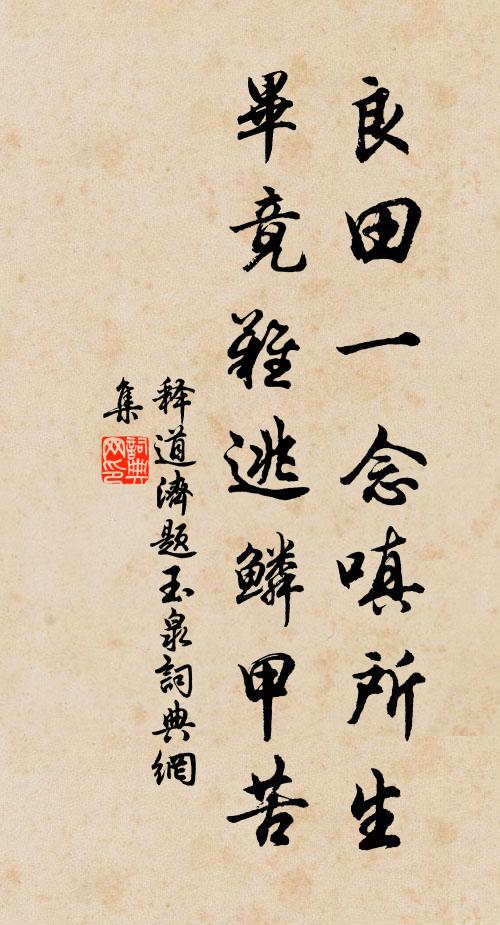 良田一念嗔所生
畢竟難逃鱗甲苦
释道濟题玉泉詞典網
集
詞典网印